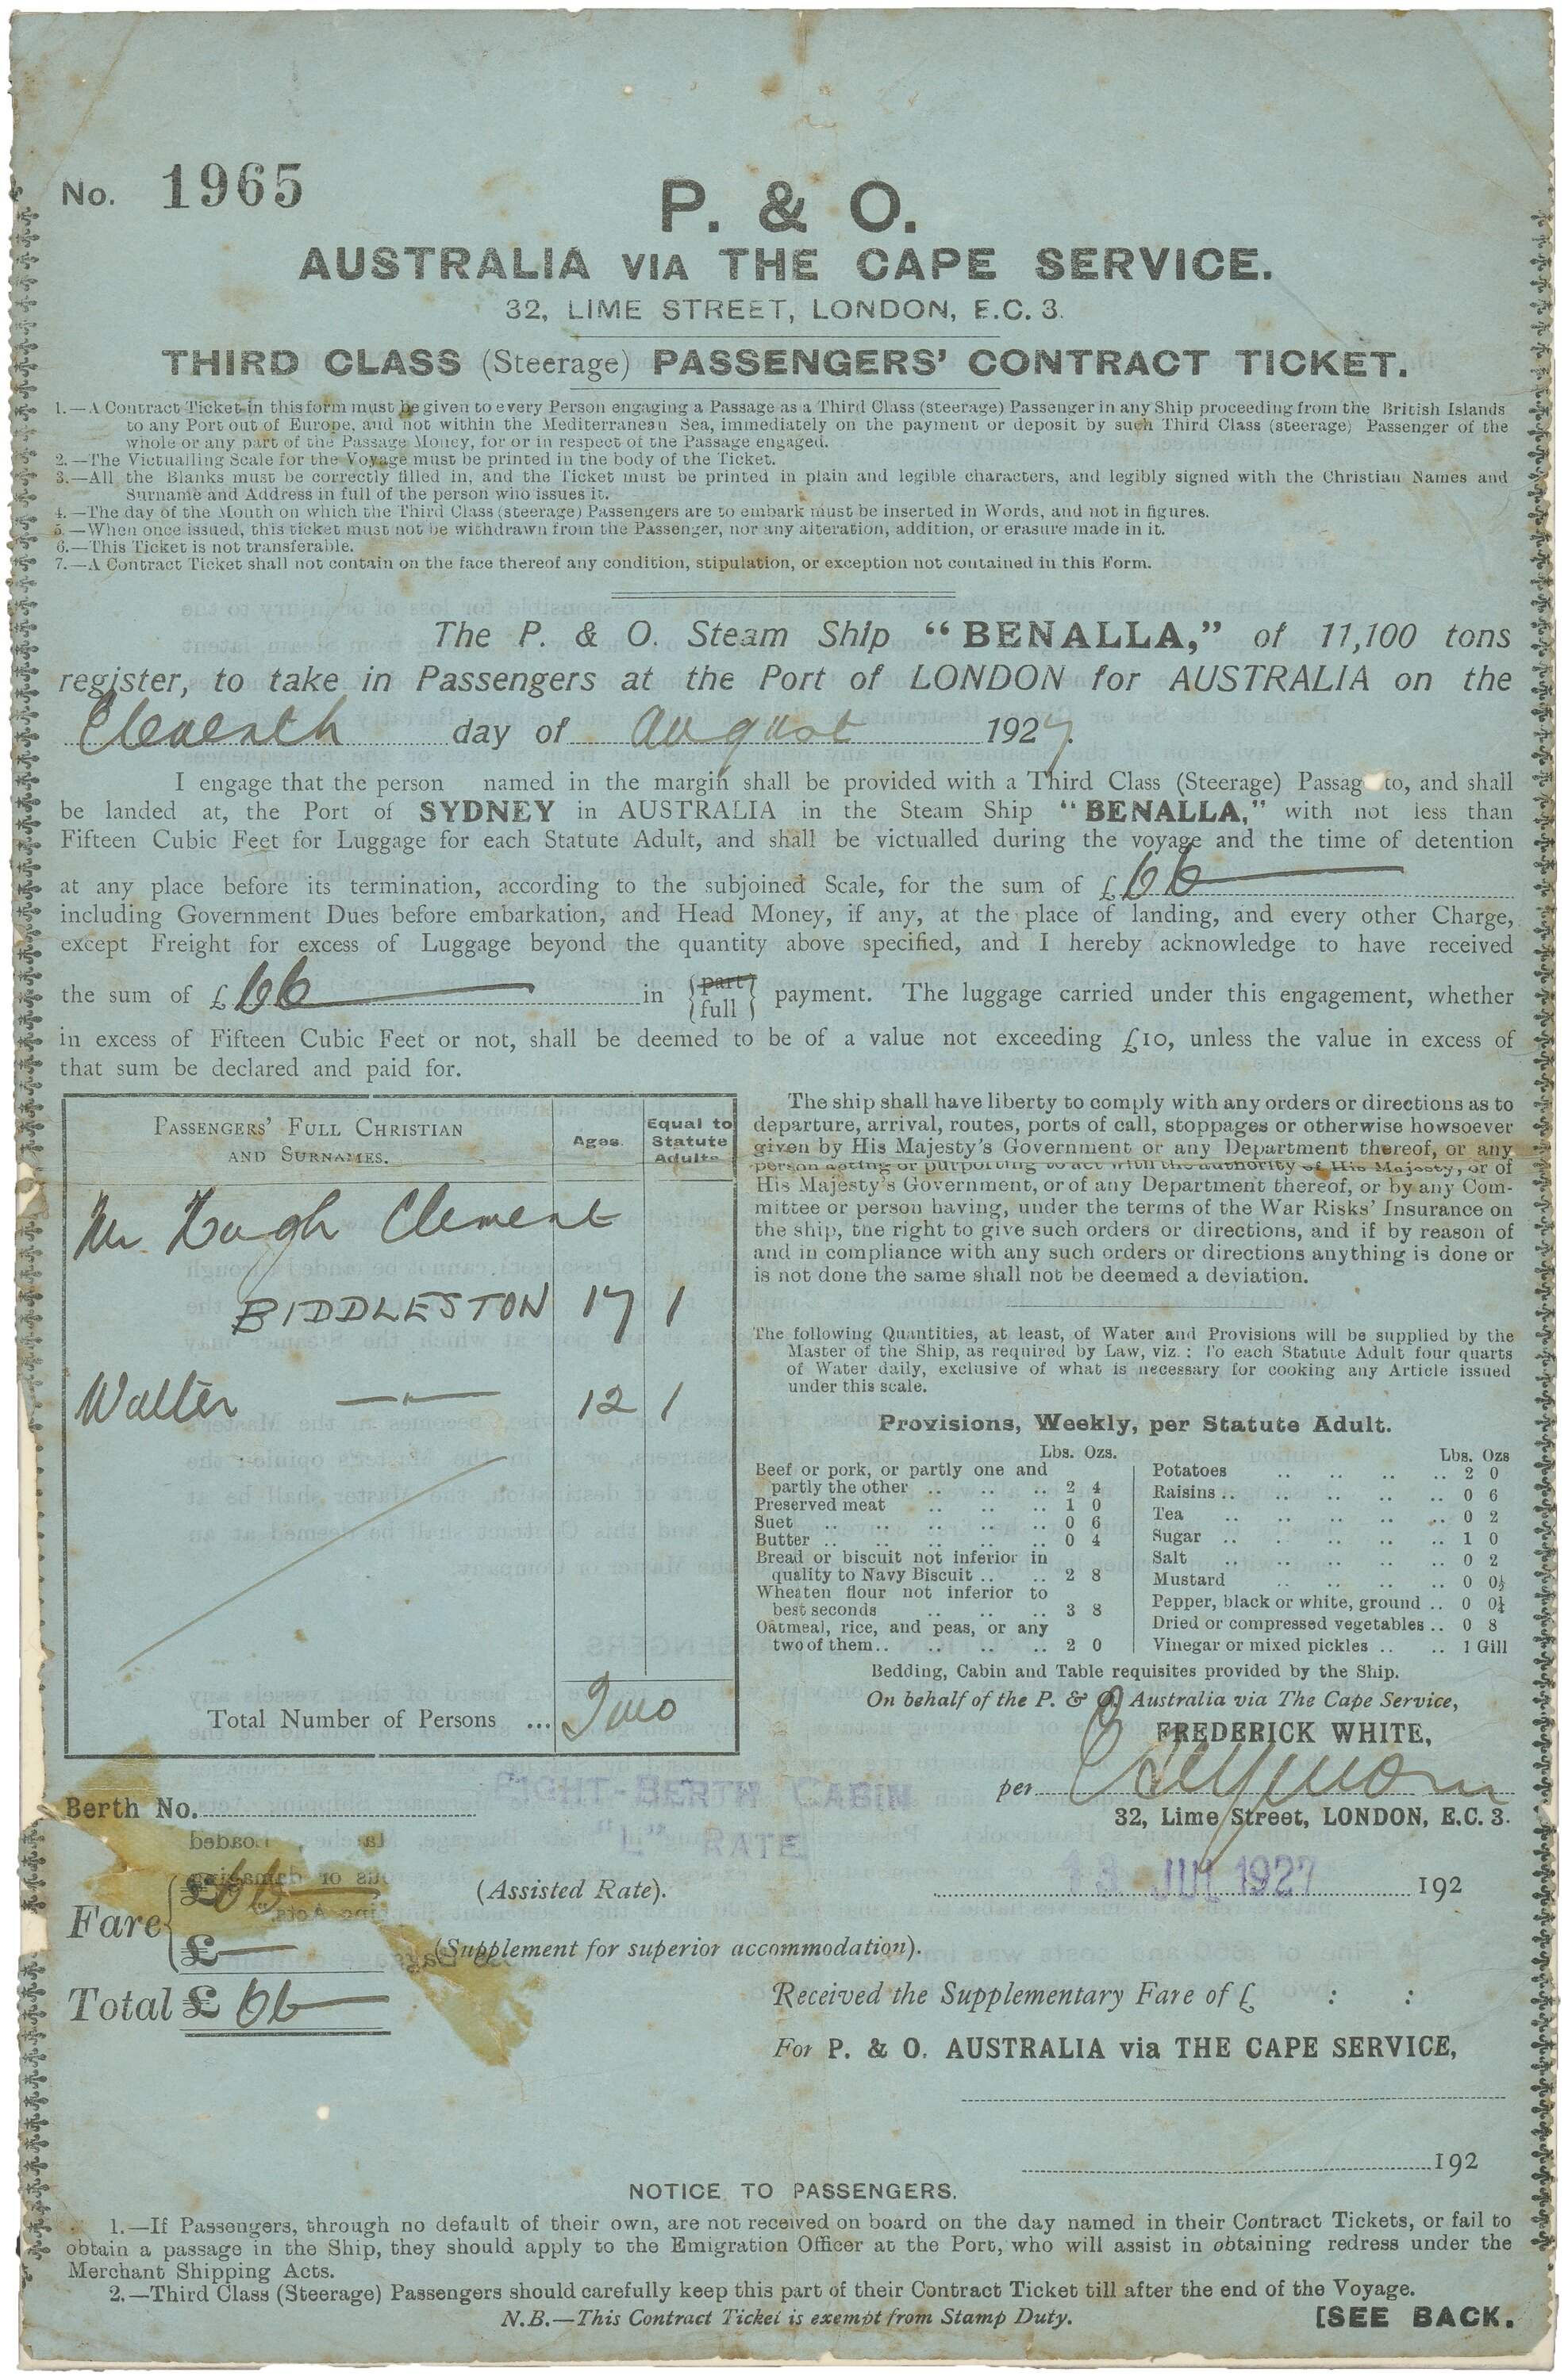 No. 1965
P. & O.
AUSTRALIA VIA THE CAPE SERVICE.
32, LIME STREET, LONDON, E.C. 3.
THIRD CLASS (Steerage) PASSENGERS' CONTRACT TICKET.
1.—A Contract Ticket in this form must be given to every Person engaging a Passage as a Third Class (steerage) Passenger in any Ship proceeding from the British Islands
to any Port out of Europe, and not within the Mediterranean Sea, immediately on the payment or deposit by such Third Class (steerage) Passenger of the
whole or any part of the Passage Money, for or in respect of the Passage engaged.
2.—The Victualling Scale for the Voyage must be printed in the body of the Ticket.
3.—All the Blanks must be correctly filled in, and the Ticket must be printed in plain and legible characters, and legibly signed with the Christian Names and
Surname and Address in full of the person who issues it.
4.—The day of the Month on which the Third Class (steerage) Passengers are to embark must be inserted in Words, and not in figures.
5.—When once issued, this ticket must not be withdrawn from the Passenger, nor any alteration, addition, or erasure made in it.
6.—This Ticket is not transferable.
7.—A Contract Ticket shall not contain on the face thereof any condition, stipulation, or exception not contained in this Form.
The P. & O. Steam Ship "BENALLA," of 11,100 tons
register, to take in Passengers at the Port of LONDON for AUSTRALIA on the
Eleventh day of August 1927.
I engage that the person named in the margin shall be provided with a Third Class (Steerage) Passag to, and shall
be landed at, the Port of SYDNEY in AUSTRALIA in the Steam Ship "BENALLA," with not less than
Fifteen Cubic Feet for Luggage for each Statute Adult, and shall be victualled during the voyage and the time of detention
at any place before its termination, according to the subjoined Scale, for the sum of £66
including Government Dues before embarkation, and Head Money, if any, at the place of landing, and every other Charge,
except Freight for excess of Luggage beyond the quantity above specified, and I hereby acknowledge to have received
the sum of £66 in {part full} payment. The luggage carried under this engagement, whether
in excess of Fifteen Cubic Feet or not, shall be deemed to be of a value not exceeding £10, unless the value in excess of
that sum be declared and paid for.
PASSENGERS' FULL CHRISTIAN
AND SURNAMES.
Ages.
Equal to
Statute
Adults
Mr Hugh Clement
BIDDLESTON 17 1
Walter —"— 12 1
Total Number of Persons ... Two
The ship shall have liberty to comply with any orders or directions as to
departure, arrival, routes, ports of call, stoppages or otherwise howsoever
given by His Majesty's Government or any Department thereof, or any
person acting or purporting to act with the authority of His Majesty, or of
His Majesty's Government, or of any Department thereof, or by any Com-
mittee or person having, under the terms of the War Risks' Insurance on
the ship, the right to give such orders or directions, and if by reason of
and in compliance with any such orders or directions anything is done or
is not done the same shall not be deemed a deviation.
The following Quantities, at least, of Water and Provisions will be supplied by the
Master of the Ship, as required by Law, viz.: To each Statute Adult four quarts
of Water daily, exclusive of what is necessary for cooking any Article issued
under this scale.
Provisions, Weekly, per Statute Adult.
Lbs. Ozs.
Beef or pork, or partly one and
partly the other .. .. .. 2 4
Preserved meat .. .. .. 1 0
Suet .. .. .. .. .. 0 6
Butter .. .. .. .. .. 0 4
Bread or biscuit not inferior in
quality to Navy Biscuit .. .. 2 8
Wheaten flour not inferior to
best seconds .. .. .. 3 8
Oatmeal, rice, and peas, or any
two of them .. .. .. .. 2 0
Lbs. Ozs
Potatoes .. .. .. .. 2 0
Raisins .. .. .. .. .. 0 6
Tea .. .. .. .. .. 0 2
Sugar .. .. .. .. .. 1 0
Salt .. .. .. .. .. 0 2
Mustard .. .. .. .. 0 0½
Pepper, black or white, ground .. 0 0¼
Dried or compressed vegetables .. 0 8
Vinegar or mixed pickles .. .. 1 Gill
Bedding, Cabin and Table requisites provided by the Ship.
On behalf of the P. & O. Australia via The Cape Service,
FREDERICK WHITE,
per
32, Lime Street, LONDON, E.C. 3.
Berth No.
EIGHT-BERTH CABIN
"L" RATE
13 JUL 1927 192
Fare £66 (Assisted Rate).
£— (Supplement for superior accommodation).
Total £66
Received the Supplementary Fare of £ : :
For P. & O. AUSTRALIA via THE CAPE SERVICE,
192
NOTICE TO PASSENGERS.
1.—If Passengers, through no default of their own, are not received on board on the day named in their Contract Tickets, or fail to
obtain a passage in the Ship, they should apply to the Emigration Officer at the Port, who will assist in obtaining redress under the
Merchant Shipping Acts.
2.—Third Class (Steerage) Passengers should carefully keep this part of their Contract Ticket till after the end of the Voyage.
N.B.—This Contract Ticket is exempt from Stamp Duty.
[SEE BACK.